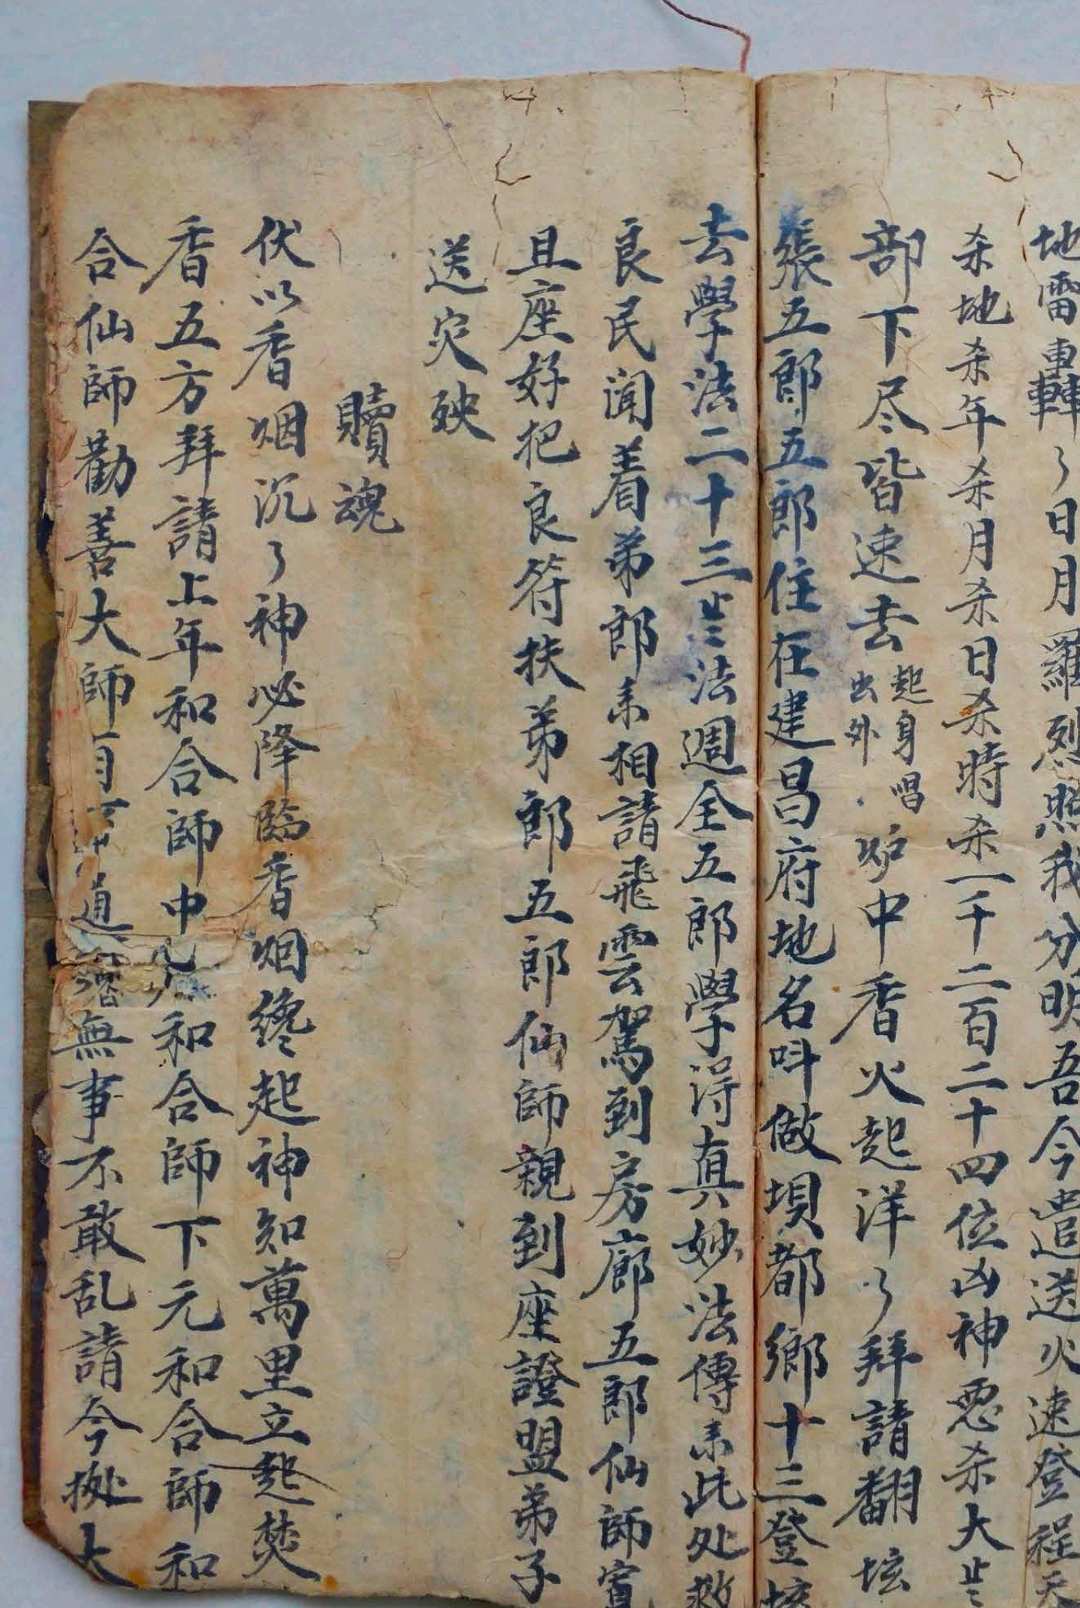 地雷轟々日月羅烈照我分明吾今遣送火速登程天
杀地杀年杀月杀日杀時杀一千二百二十四位凶神恶杀大
部下尽皆速去起身唱出外炉中香火起洋々拜請翻坛
張五郎五郎住在建昌府地名叫做垻都鄉十三登坛
去學法二十三歲法週全五郎學淂真妙法傳来此处救
良民闻着弟郎来相請飛雲駕到房廊五郎仙師寬
且座好把良符扶弟郎五郎仙師親到座證盟弟子
送灾殃
贖魂
伏以香烟沉々神必降臨香烟纔起神知萬里立起焚
香五方拜請上年和合師中元和合師下元和合師和
合仙師勸善大師無事不敢乱請今拠大